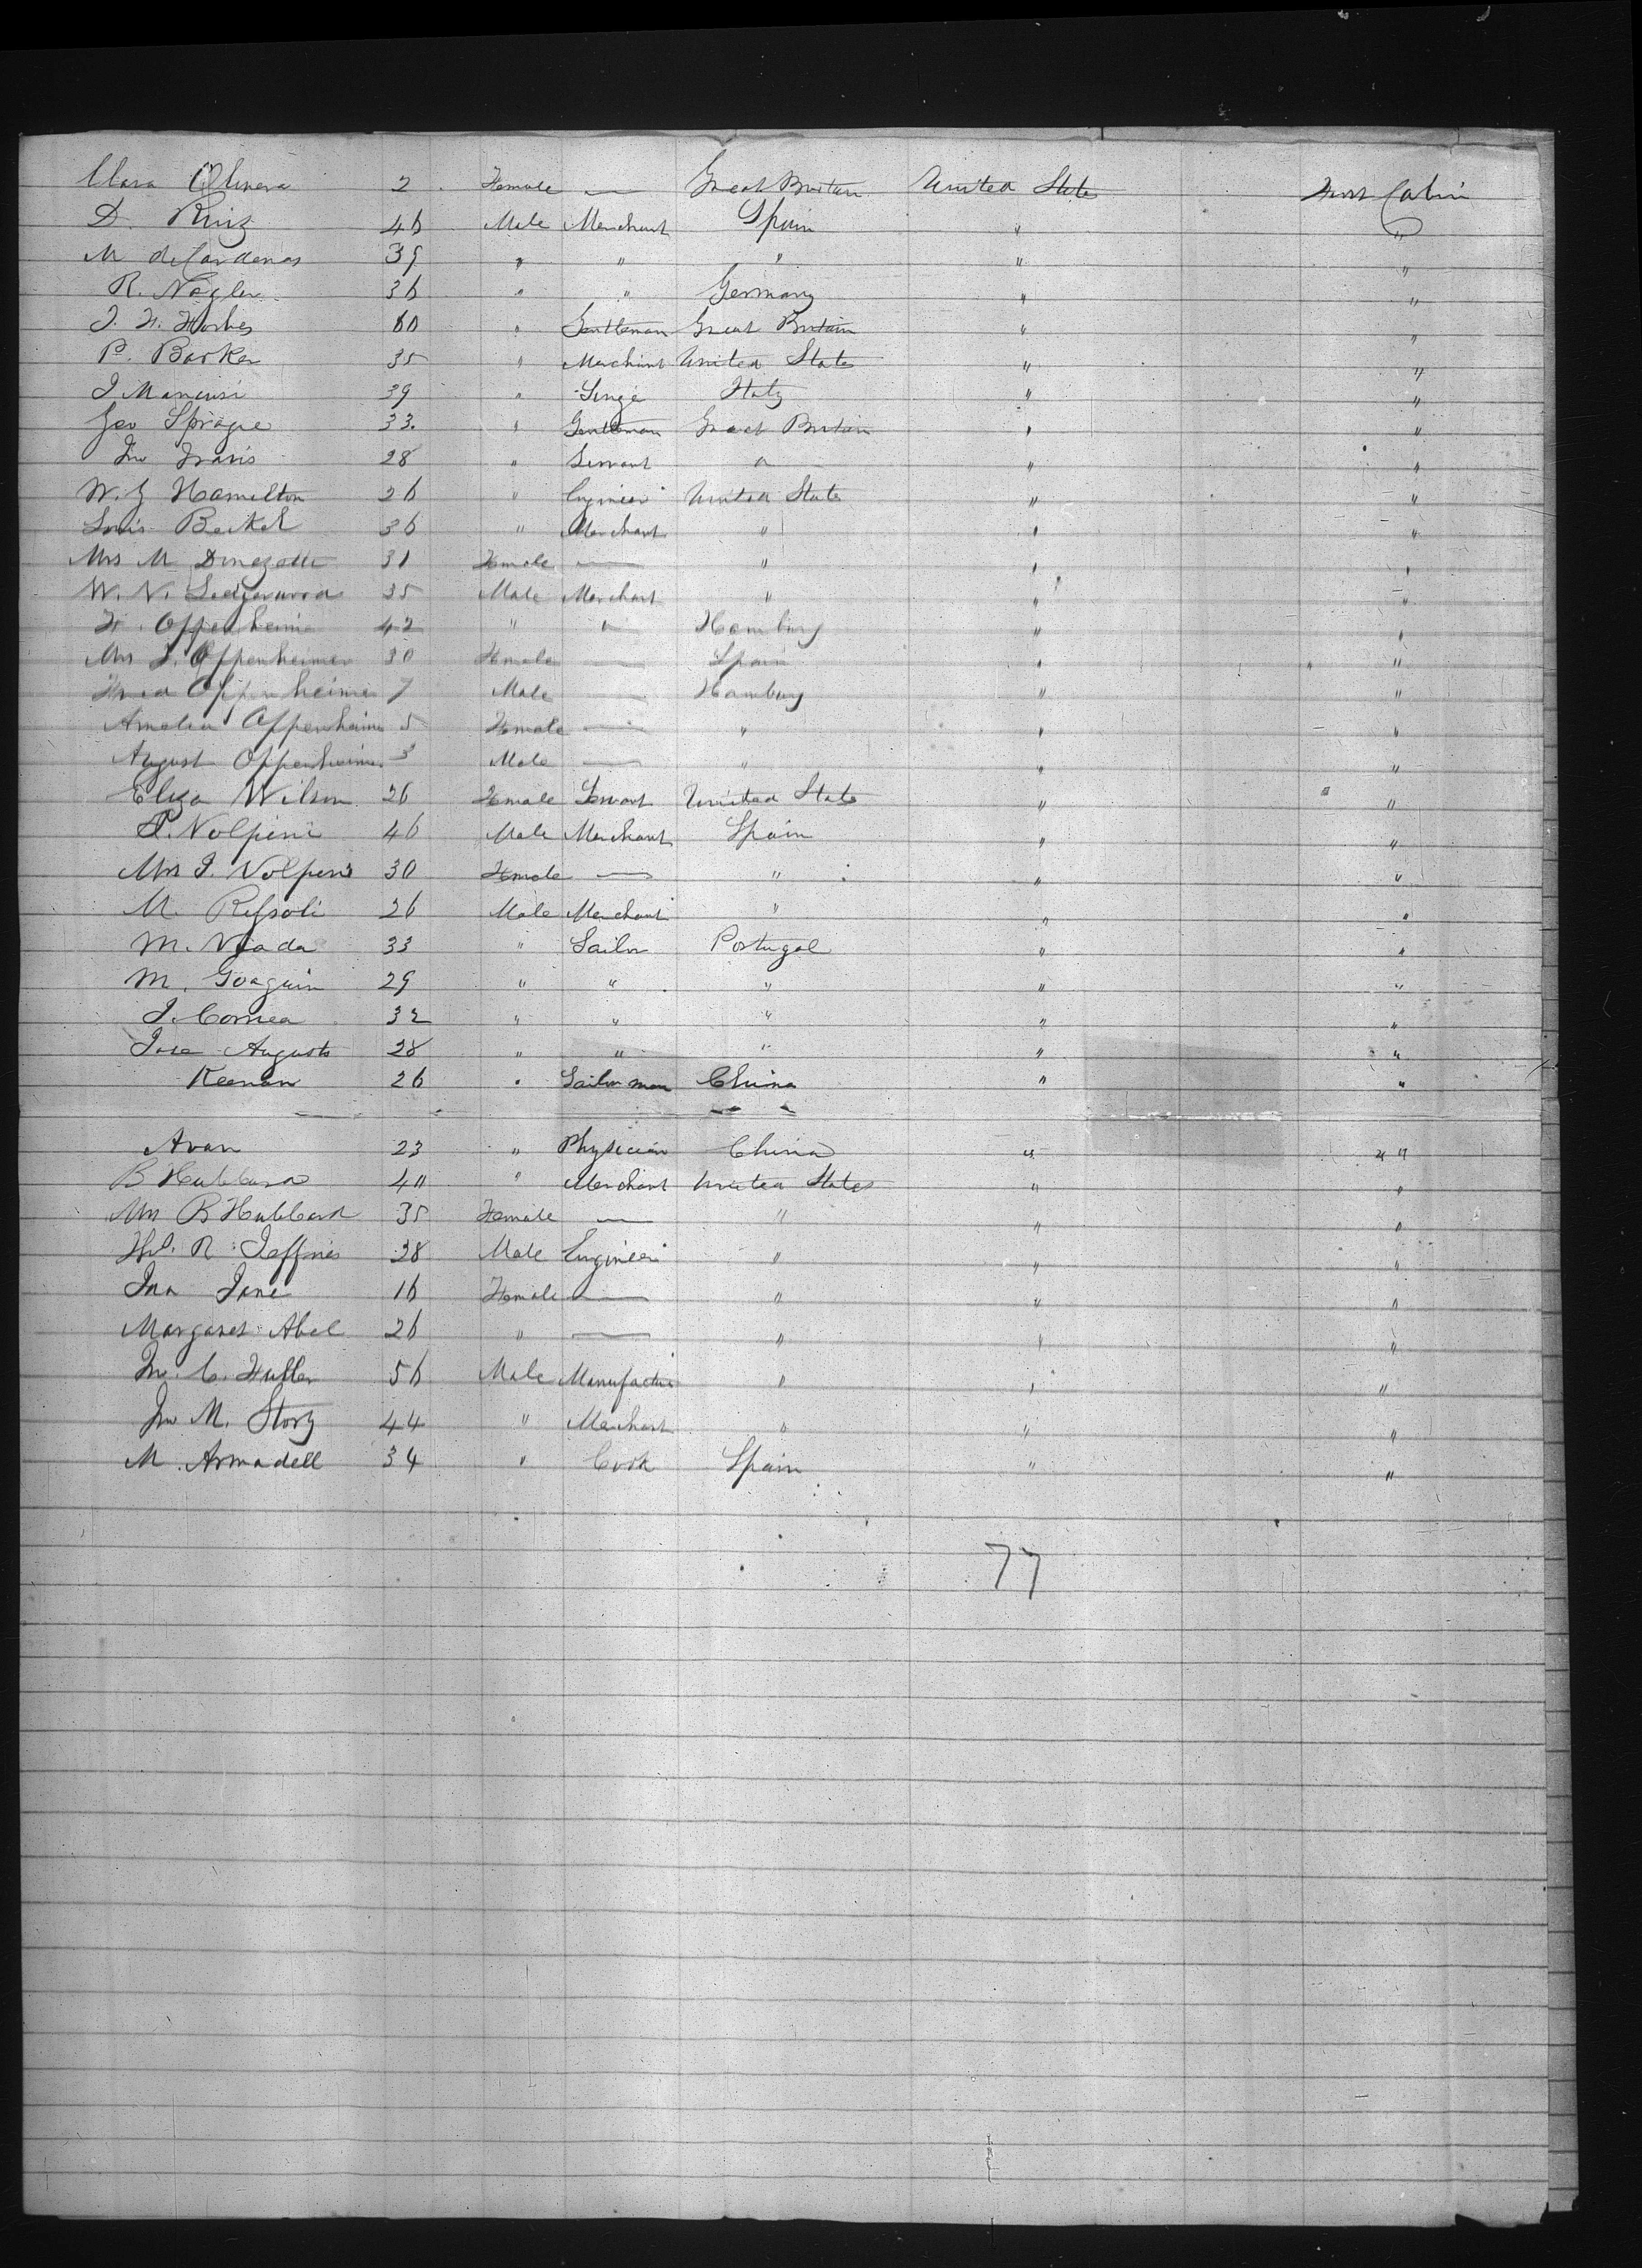 Clara Olivera 2 Female — Great Britain United States First Cabin
D. Ruiz 46 Male Merchant Spain " "
M de Cardenas 39 " " " " "
R. Nagler 36 " " Germany " "
J. H. Forbes 60 " Gentleman Great Britain " "
P. Barker 35 " Merchant United States " "
J Mancusi 39 " Singer Italy " "
Geo Sprague 33. " Gentleman Great Britain " "
Jno Travis 28 " Servant " " "
W. G Hamilton 26 " Engineer United States " "
Louis Beckel 36 " Merchant " " "
Mrs M 31 Female — " " "
W. N. 35 Male Merchant " " "
F. Oppenheimer 42 " " Hamburg " "
Mrs J. Oppenheimer 30 Female — Spain " "
Oppenheimer 7 Male — Hamburg " "
Amelia Oppenheimer 5 Female — " " "
August Oppenheimer 3 Male — " " "
Eliza Wilson 26 Female Servant United States " "
J. Volpini 46 Male Merchant Spain " "
Mrs J. Volpini 30 Female — " " "
M. 26 Male Merchant " " "
M. Viada 33 " Sailor Portugal " "
M. Goaquin 29 " " " " "
J. Correa 32 " " " " "
Jose Augusto 28 " " " " "
Keenan 26 " China " "
Avan 23 " Physician China " " "
B Hubbard 40 " Merchant United States " "
Mrs B Hubbard 35 Female — " " "
R. Jeffries 38 Male Engineer " " "
Jane 16 Female — " " "
Margaret Abel 26 " — " " "
Jno. C. Fuller 56 Male Manufacturer " " "
Jno M. Story 44 " Merchant " " "
M. Armadell 34 " Cook Spain " "
77